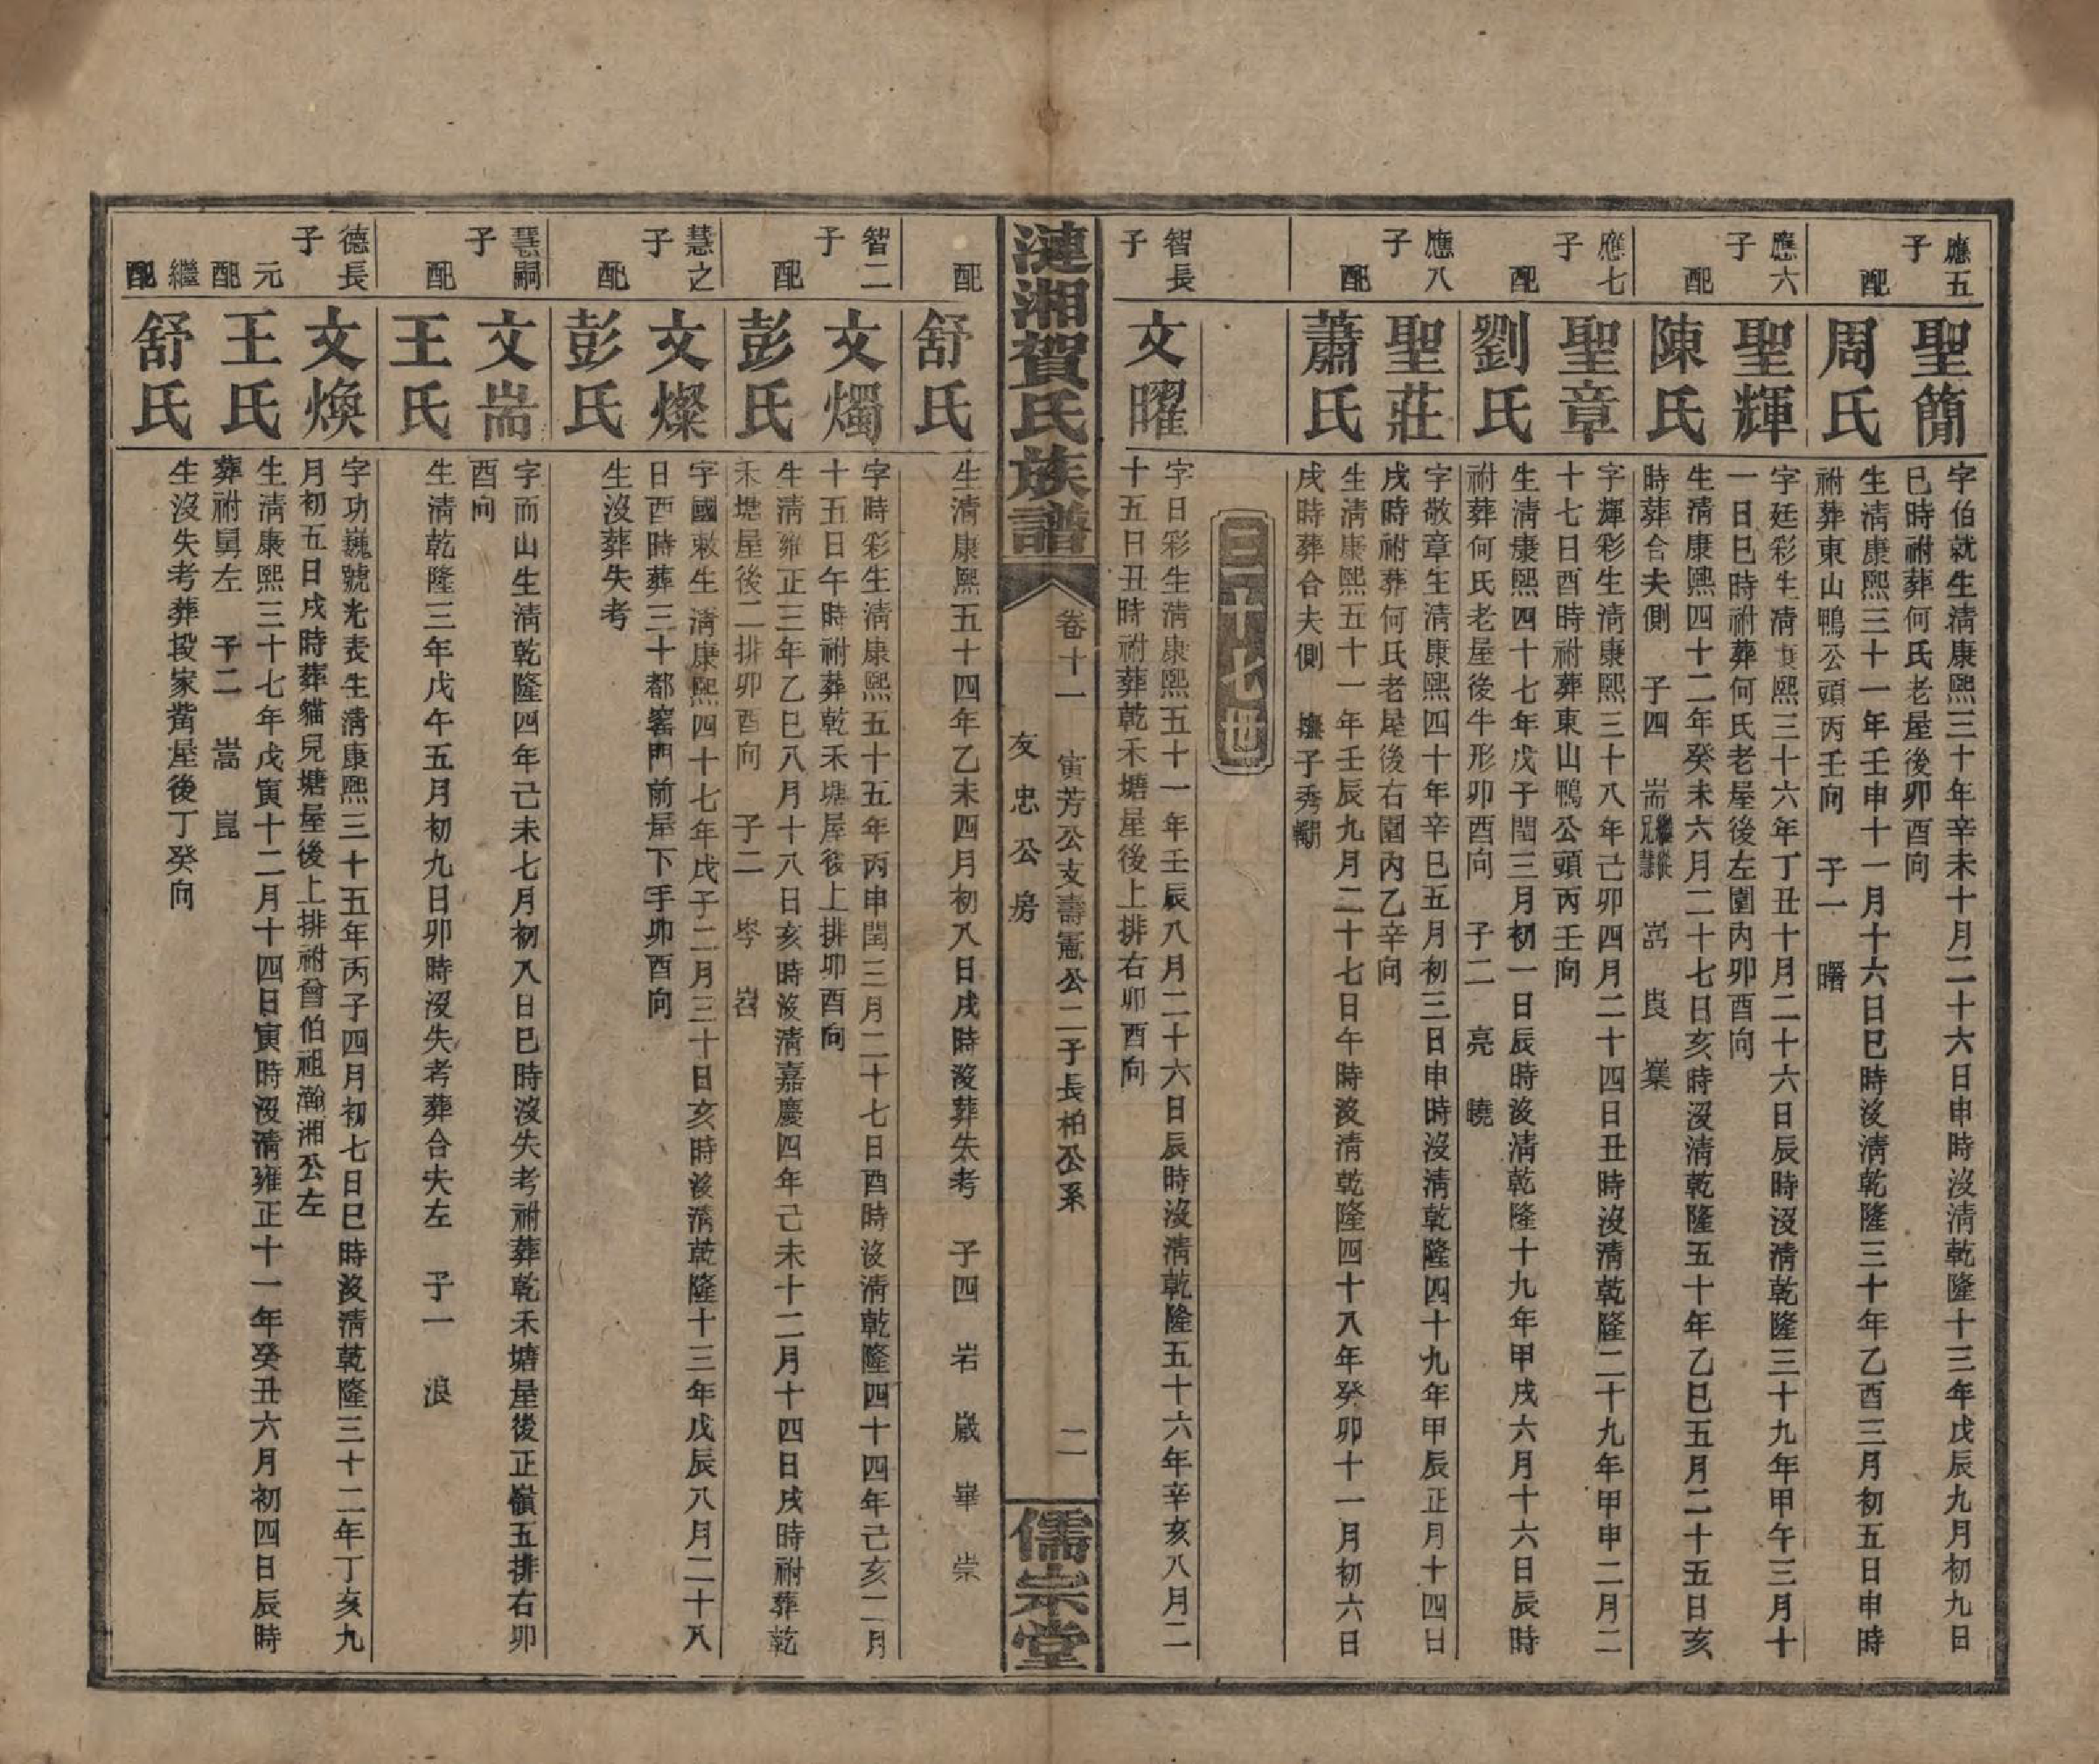 應五子
聖簡
字伯就生清康熙三十年辛未十月二十六日申時沒清乾隆十三年戊辰九月初九日
巳時祔葬何氏老屋後卯酉向
配
周氏
生清康熙三十一年壬申十一月十六日巳時沒清乾隆三十年乙酉三月初五日申時
祔葬東山鴨公頭丙壬向　子一　曙
應六子
聖輝
字廷彩生清康熙三十六年丁丑十月二十六日辰時沒清乾隆三十九年甲午三月十
一日巳時祔葬何氏老屋後左圍內卯酉向
配
陳氏
生清康熙四十二年癸未六月二十七日亥時沒清乾隆五十年乙巳五月二十五日亥
時葬合夫側　子四　耑繼從兄慧　嵒　崀　㠔
應七子
聖章
字輝彩生清康熙三十八年己卯四月二十四日丑時沒清乾隆二十九年甲申二月二
十七日酉時祔葬東山鴨公頭丙壬向
配
劉氏
生清康熙四十七年戊子閏三月初一日辰時沒清乾隆十九年甲戌六月十六日辰時
祔葬何氏老屋後牛形卯酉向　子二　亮　曉
應八子
聖莊
字敬章生清康熙四十年辛巳五月初三日申時沒清乾隆四十九年甲辰正月十四日
戌時祔葬何氏老屋後右圍內乙辛向
配
蕭氏
生清康熙五十一年壬辰九月二十七日午時沒清乾隆四十八年癸卯十一月初六日
戌時葬合夫側　撫子秀嘲
三十七世
智長子
文曜
字日彩生清康熙五十一年壬辰八月二十六日辰時沒清乾隆五十六年辛亥八月二
十五日丑時祔葬乾禾塘屋後上排右卯酉向
漣湘賀氏族譜
卷十一　寅芳公支壽憲公二子長柏公系
友忠公房
二
儒宗堂
配
舒氏
生清康熙五十四年乙未四月初八日戌時沒葬失考　子四　岩　嵗　崋　崇
智二子
文燭
字時彩生清康熙五十五年丙申閏三月二十七日酉時沒清乾隆四十四年己亥二月
十五日午時祔葬乾禾塘屋後上排卯酉向
配
彭氏
生清雍正三年乙巳八月十八日亥時沒清嘉慶四年己未十二月十四日戌時祔葬乾
禾塘屋後二排卯酉向　子二　岑　岧
慧之子
文燦
字國敕生清康熙四十七年戊子二月三十日亥時沒清乾隆十三年戊辰八月二十八
日酉時葬三十都窰門前屋下手卯酉向
配
彭氏
生沒葬失考
慧嗣子
文耑
字而山生清乾隆四年己未七月初八日巳時沒失考祔葬乾禾塘屋後正嶺五排右卯
酉向
配
王氏
生清乾隆三年戊午五月初九日卯時沒失考葬合夫左　子一　浪
德長子
文煥
字功巍號光表生清康熙三十五年丙子四月初七日巳時沒清乾隆三十二年丁亥九
月初五日戌時葬貓兒塘屋後上排祔曾伯祖瀚湘公左
元配
王氏
生清康熙三十七年戊寅十二月十四日寅時沒清雍正十一年癸丑六月初四日辰時
葬祔舅左　子二　嵩　崑
繼配
舒氏
生沒失考葬段家嘴屋後丁癸向